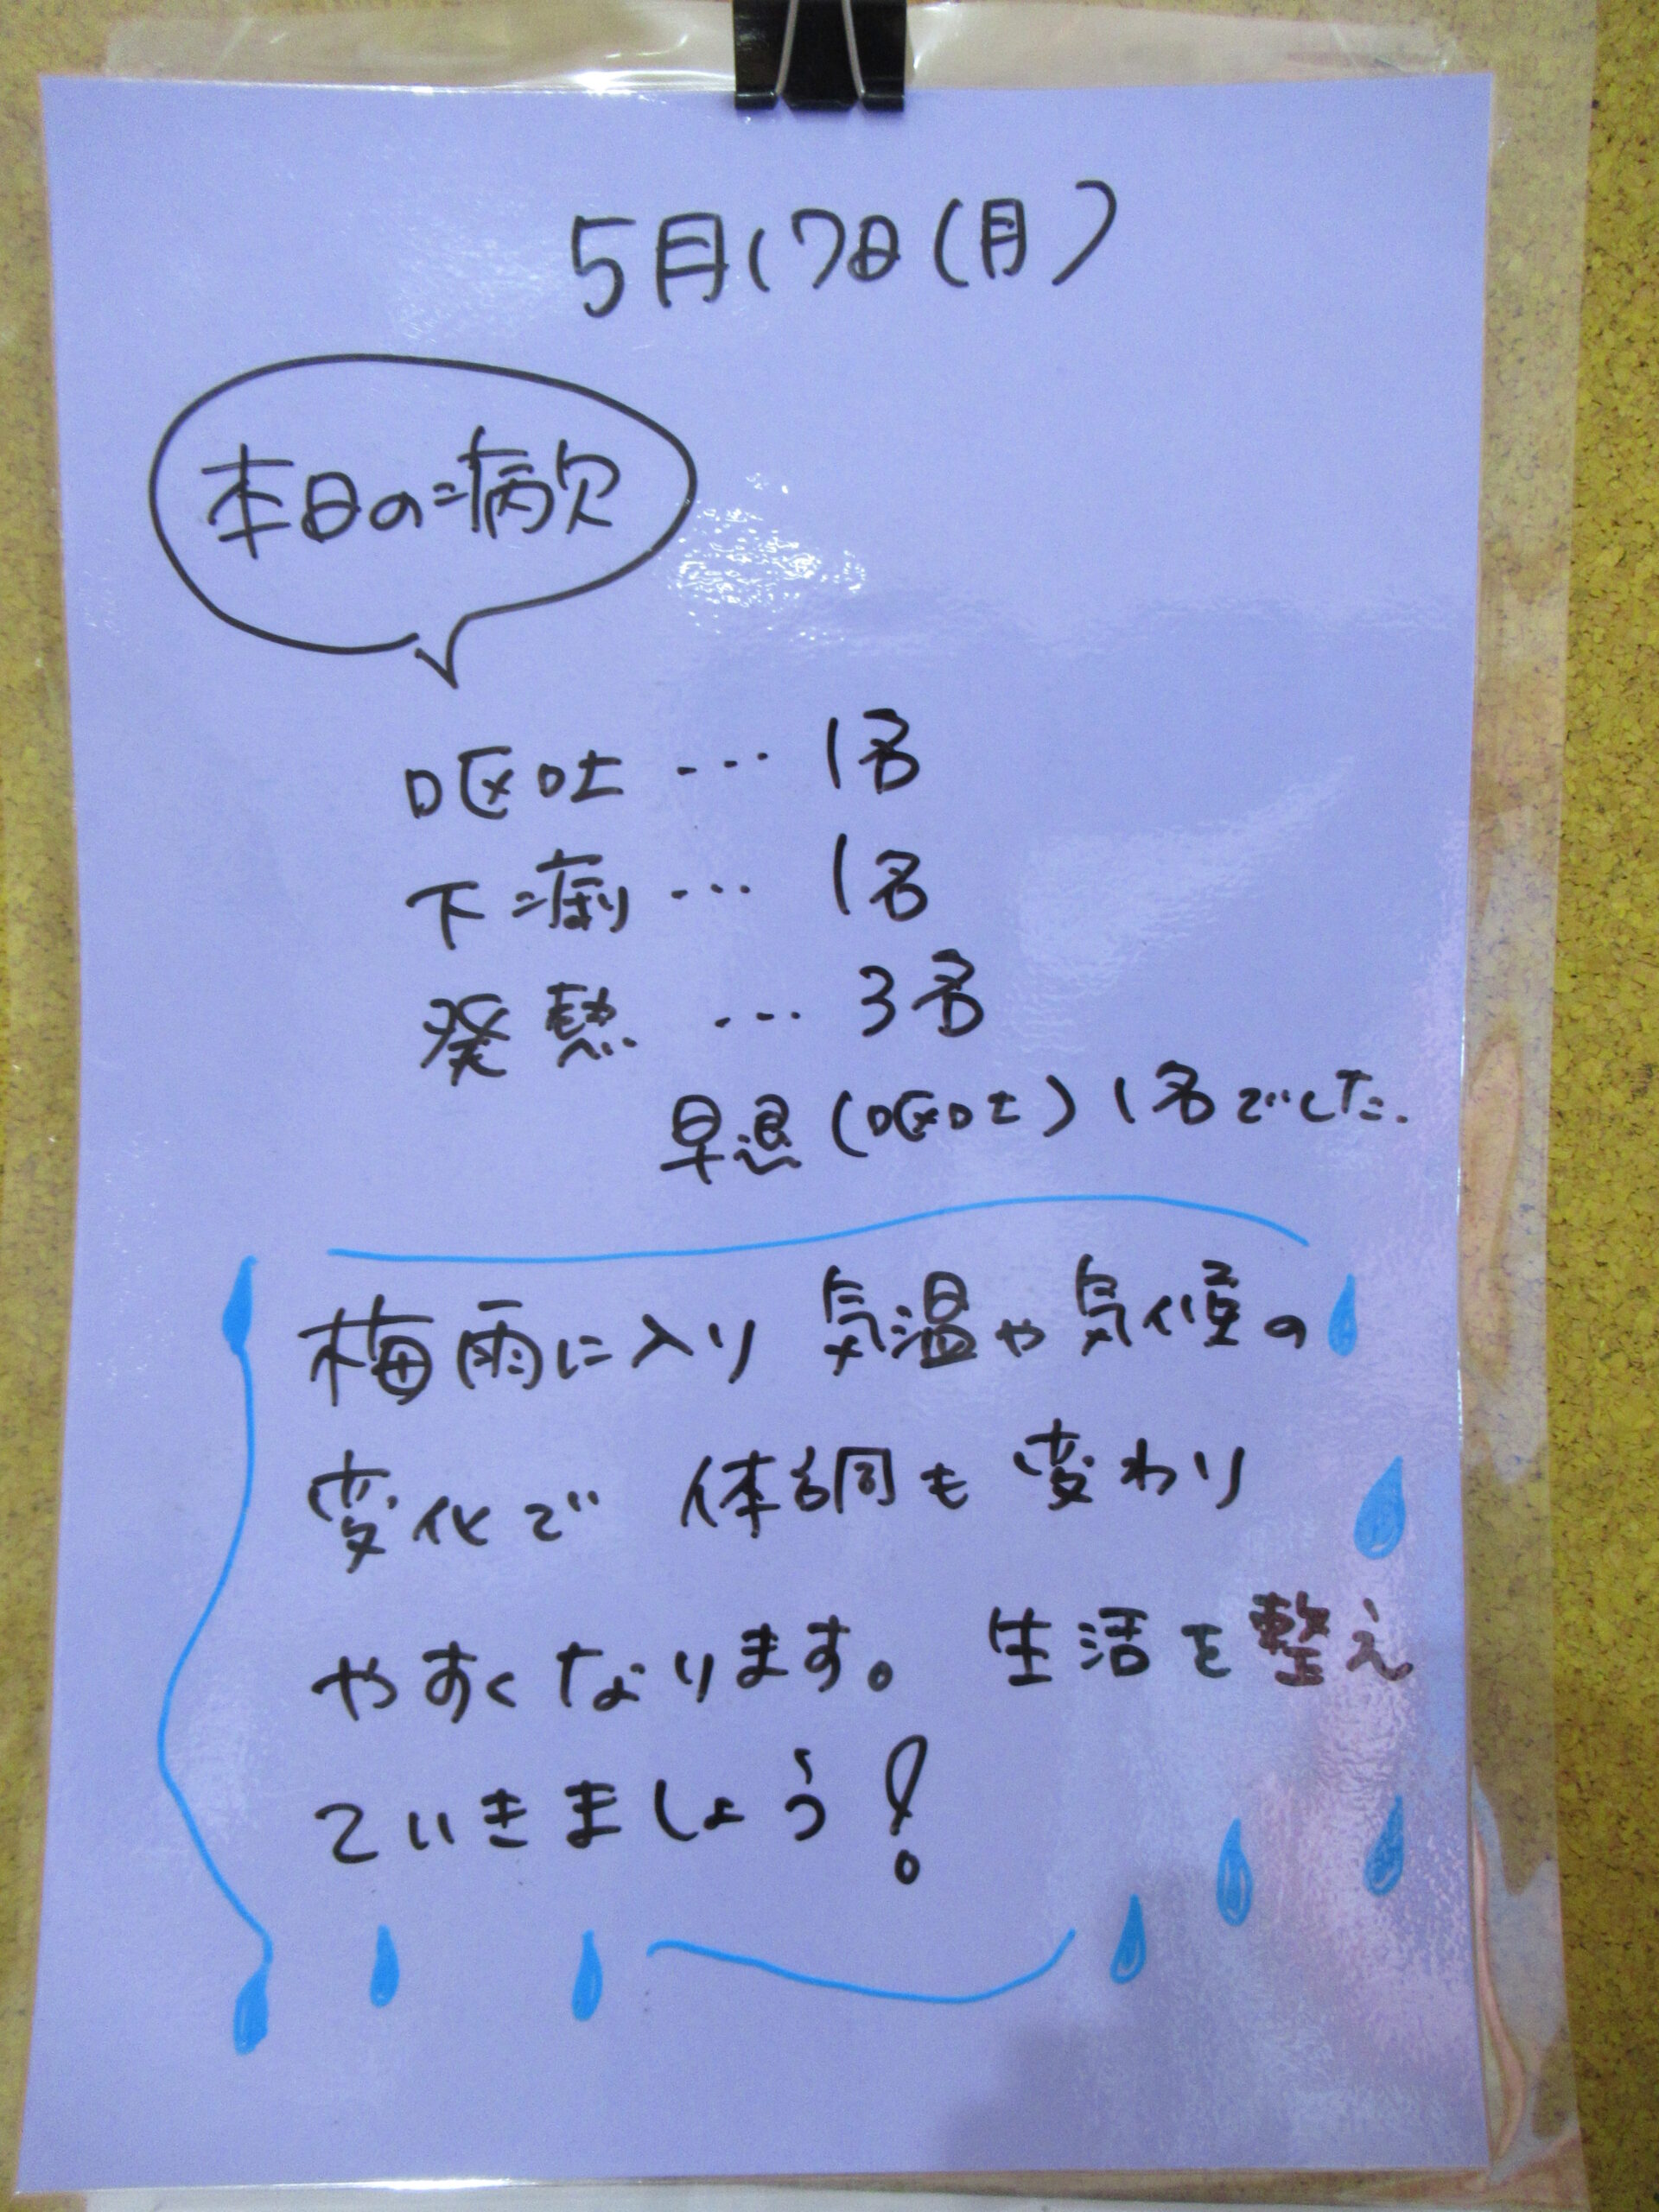 5月17日(月)
本日の病欠
呕吐 … 1名
下痢 … 1名
発熱 … 3名
早退(呕吐)1名でした.
梅雨に入り 気温や気候の
変化で 体調も変わり
やすくなります。 生活を整え
ていきましょう!